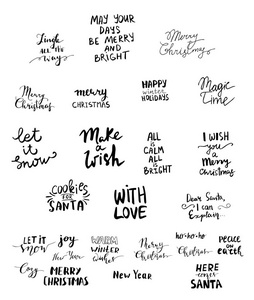 Jingle
all the
way
MAY YOUR
DAYS
BE MERRY
AND
BRIGHT
Merry
Christmas
Merry
Christmas
merry
CHRISTMAS
HAPPY
winter
HOLIDAYS
Magic
Time
let
it
snow
Make
a
Wish
ALL
is
CALM
ALL
is
BRIGHT
I WISH
you
a
Merry
Christmas
COOKIES
FOR
SANTA
WITH
LOVE
Dear Santa,
I can
Explain...
LET IT
SNOW
joy
New Year
WARM
WINTER
wishes
Merry
Christmas
ho-ho-ho
Christmas
PEACE
on
earth
Cozy
MERRY
CHRISTMAS
New Year
HERE
comes
SANTA